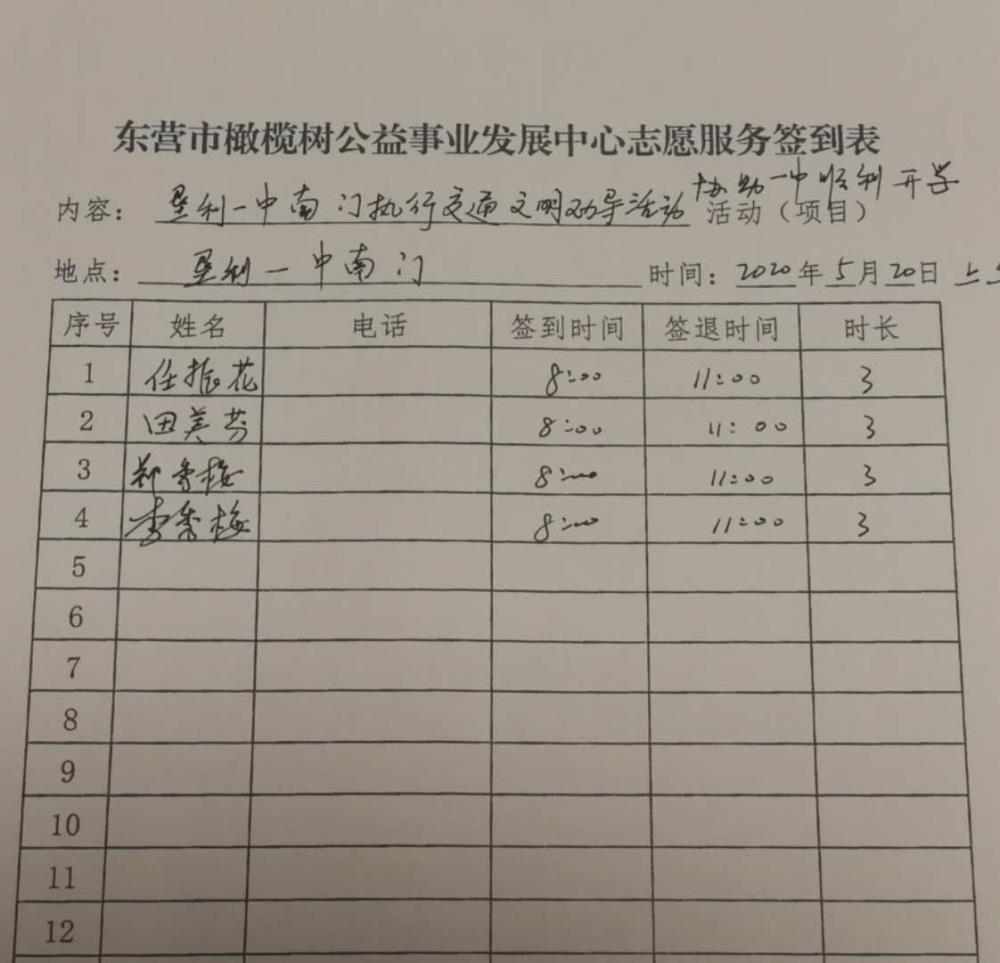 东营市橄榄树公益事业发展中心志愿服务签到表
协助一中顺利开学
内容：垦利一中南门执行交通文明劝导活动 活动（项目）
地点：垦利一中南门 时间：2020年5月20日 上
序号 姓名 电话 签到时间 签退时间 时长
1 任振花 8:00 11:00 3
2 田美芬 8:00 11:00 3
3 郑香梅 8:00 11:00 3
4 李秀梅 8:00 11:00 3
5
6
7
8
9
10
11
12